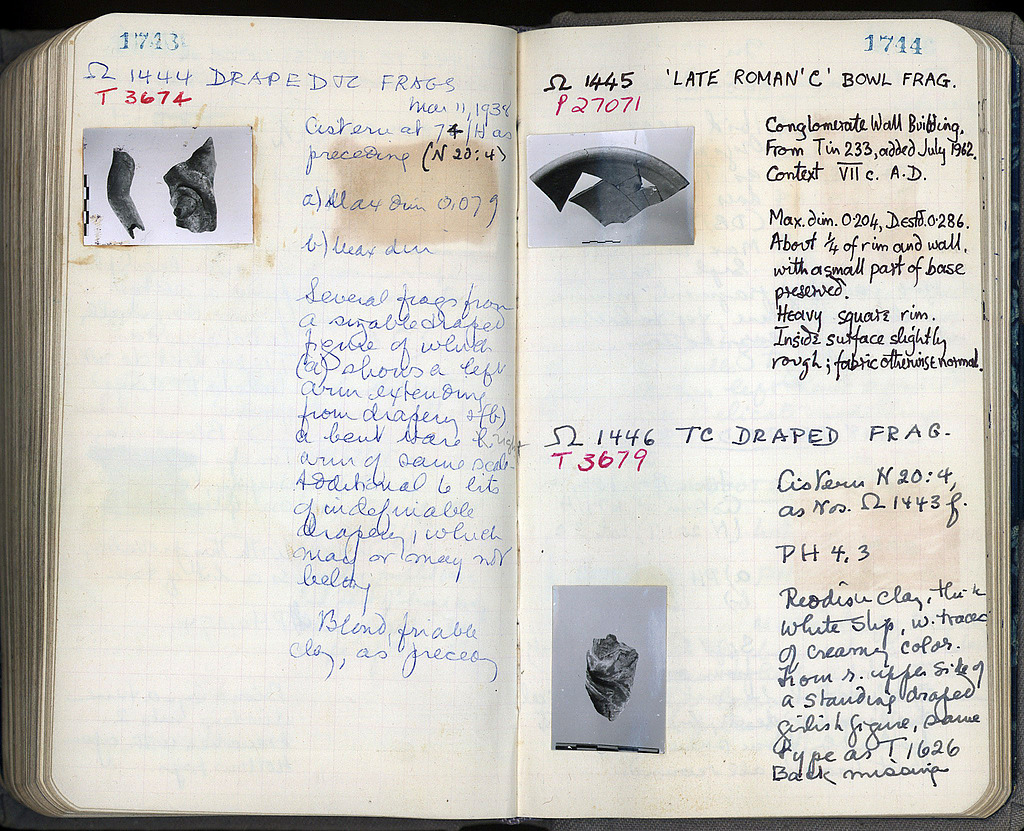 1743
Ω 1444 DRAPED TC FRAGS
T 3674
Mar 11, 1938
Cistern at 74/H as
preceding (N 20:4)
a) Max dim 0.079
b) Max dim
Several frags from
a sizable draped
figure of which
(a) shows a left
arm extending
from drapery & (b)
a bent bare right
arm of same scale.
Additional 6 bits
of indefinable
drapery, which
may or may not
belong
Blond, friable
clay, as preceding
1744
Ω 1445 'LATE ROMAN 'C' BOWL FRAG.
P 27071
Conglomerate Wall Building.
From Tin 233, added July 1962.
Context VII c. A.D.
Max. dim. 0.204, Destd. 0.286.
About ¼ of rim and wall,
with a small part of base
preserved.
Heavy square rim.
Inside surface slightly
rough; fabric otherwise normal.
Ω 1446 TC DRAPED FRAG.
T 3679
Cistern N 20:4,
as Nos. Ω 1443 f.
PH 4.3
Reddish clay, thick
white slip, w. traces
of creamy color.
From r. upper side of
a standing draped
girlish figure, same
type as T 1626
Back missing